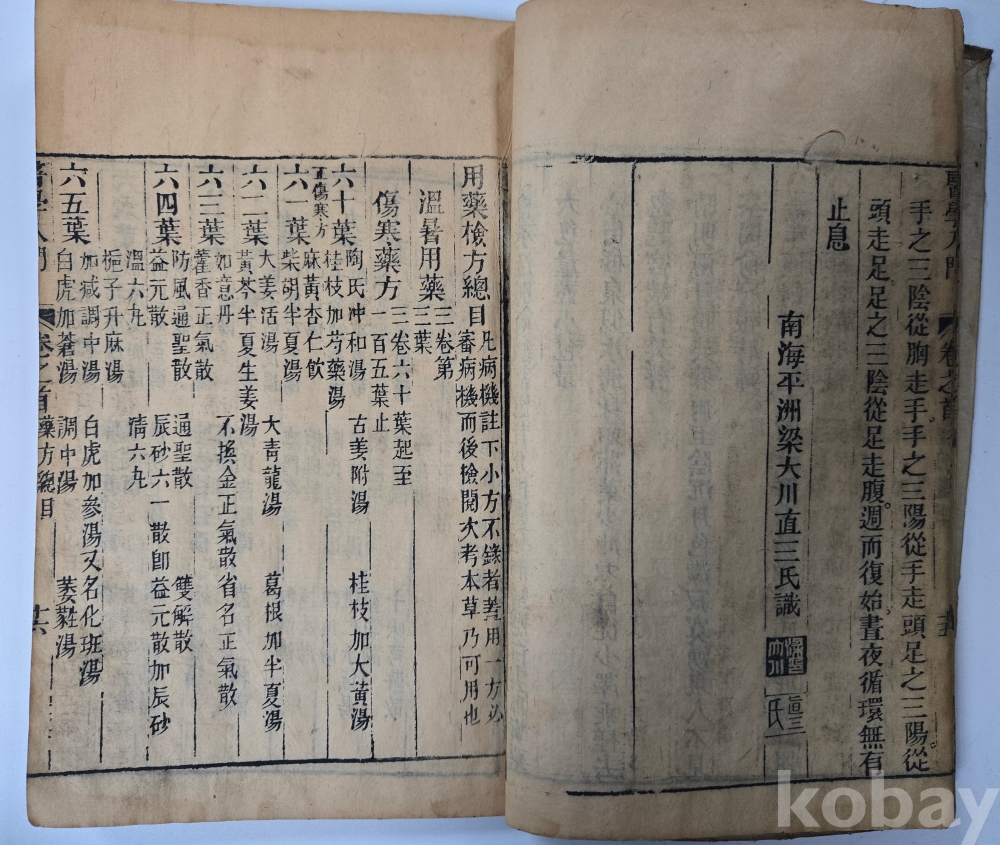 手之三陰從胸走手。手之三陽從手走頭足之三陽從
頭走足足之三陰從足走腹。週而復始晝夜循環無有
止息
南海平洲梁大川直三氏識
直三氏
用藥檢方總目
凡病機註下小方不錄者蓋用一方必
審病機而後檢閱次考本草乃可用也
溫暑用藥
三卷第
三葉
傷寒藥方
三卷六十葉起至
一百五葉止
六十葉
陶氏冲和湯 古姜附湯 桂枝加大黃湯
桂枝加芍藥湯
正傷寒方
六一葉
麻黃杏仁飲
柴胡半夏湯 大青龍湯 葛根加半夏湯
六二葉
大姜活湯
黃芩半夏生姜湯
六三葉
如意丹 不換金正氣散省名正氣散
藿香正氣散
六四葉
防風通聖散 通聖散 雙解散
益元散 辰砂六一散卽益元散加辰砂
溫六丸 清六丸
梔子升麻湯
六五葉
加减調中湯 白虎加參湯又名化班湯
白虎加蒼湯 調中湯 萎蕤湯
醫學入門 卷之首 藥方總目 十六
kobay